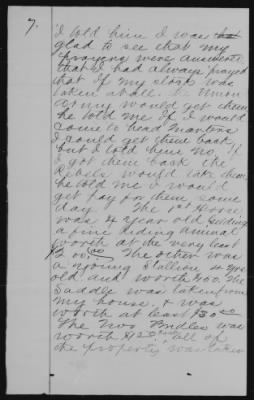 7.
I told him I was
glad to see that my
prayers were answered
that I had always prayed
that if my stock was
taken at all. the Union
Army would get them
he told me if I would
come to head Quarters
I could get them back
but I told him no If
I got them back the
Rebels would take them
he told me I would
get pay for them some
day The 1st Horse
was 4 year old gelding
a fine riding animal
worth at the very least
200.00 The other was
a young Stallion 4 yrs
old and worth 200. The
Saddle was taken from
my house. & was
worth at least $30.00
The two Bridles was
worth all of
the property was taken